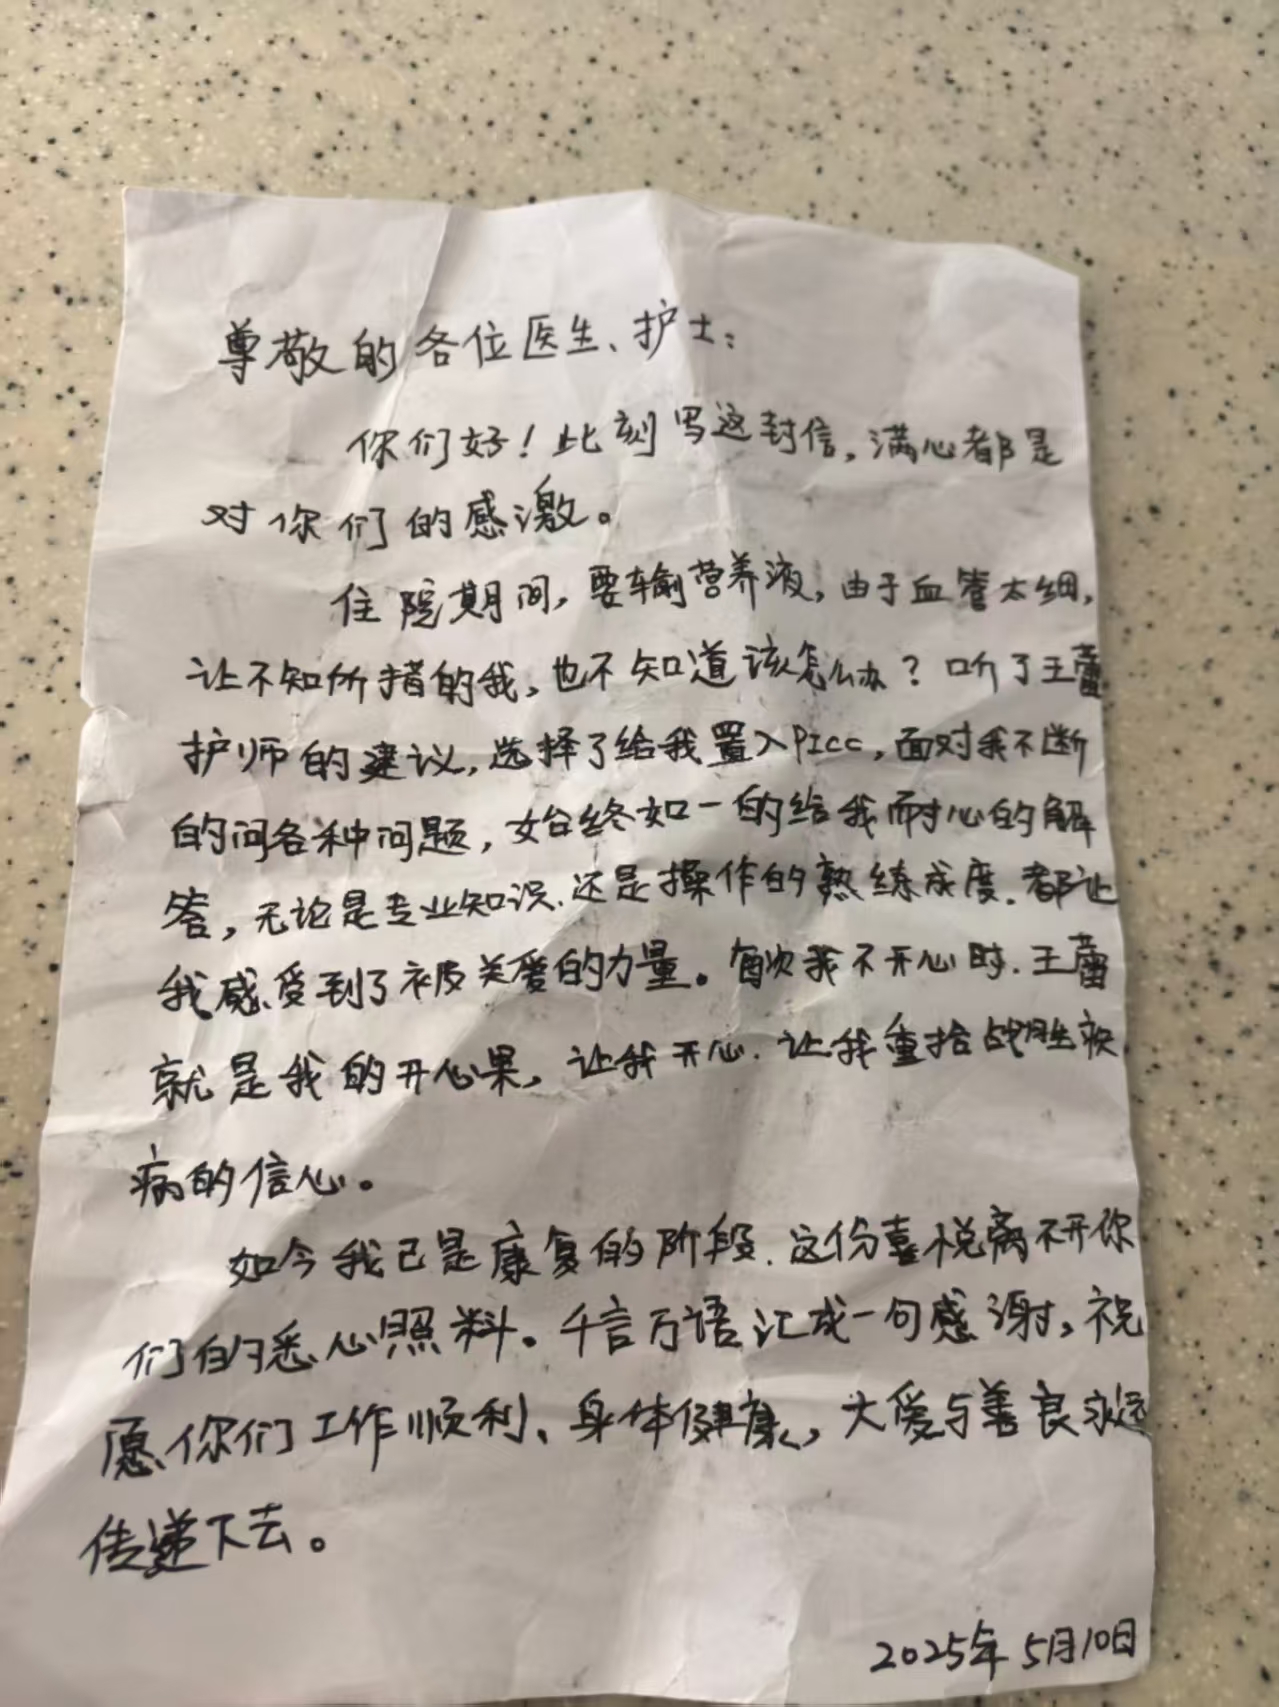 尊敬的各位医生、护士：
你们好！此刻写这封信，满心都是
对你们的感激。
住院期间，要输营养液，由于血管太细，
让不知所措的我，也不知道该怎么办？听了王蕾
护师的建议，选择了给我置入PICC，面对我不断
的问各种问题，始终如一的给我耐心的解
答，无论是专业知识、还是操作的熟练成度．都让
我感受到了被关爱的力量。每次我不开心时．王蕾
就是我的开心果，让我开心．让我重拾战胜疾
病的信心。
如今我已是康复的阶段．这份喜悦离不开你
们的悉心照料。千言万语汇成一句感谢，祝
愿你们工作顺利、身体健康，大爱与善良永远
传递下去。
2025年5月10日